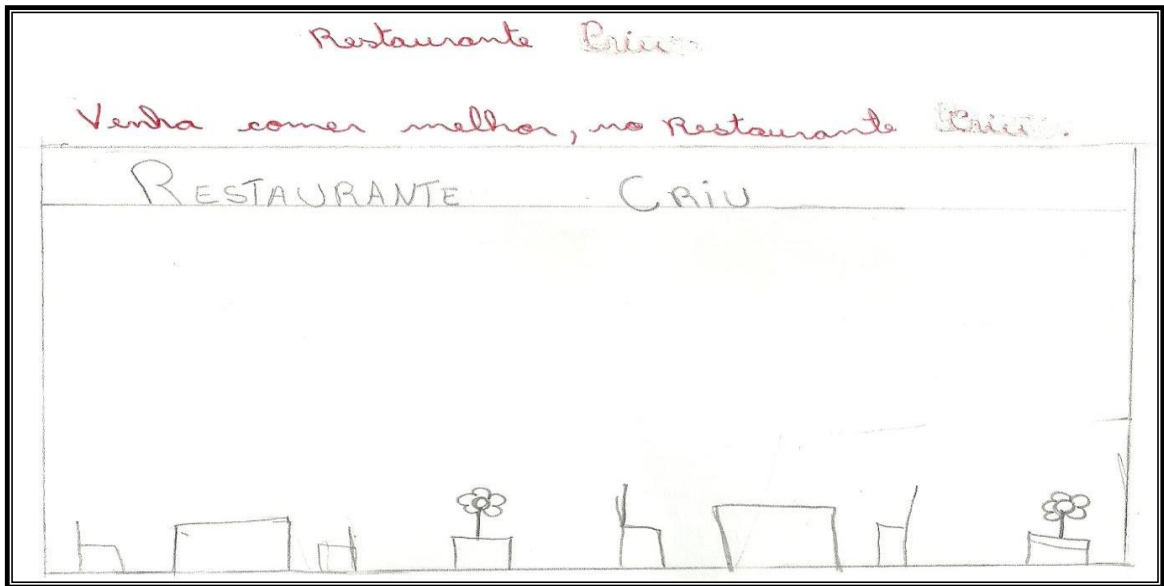 Restaurante Criu
Venha comer melhor, no Restaurante Criu.
RESTAURANTE CRiU